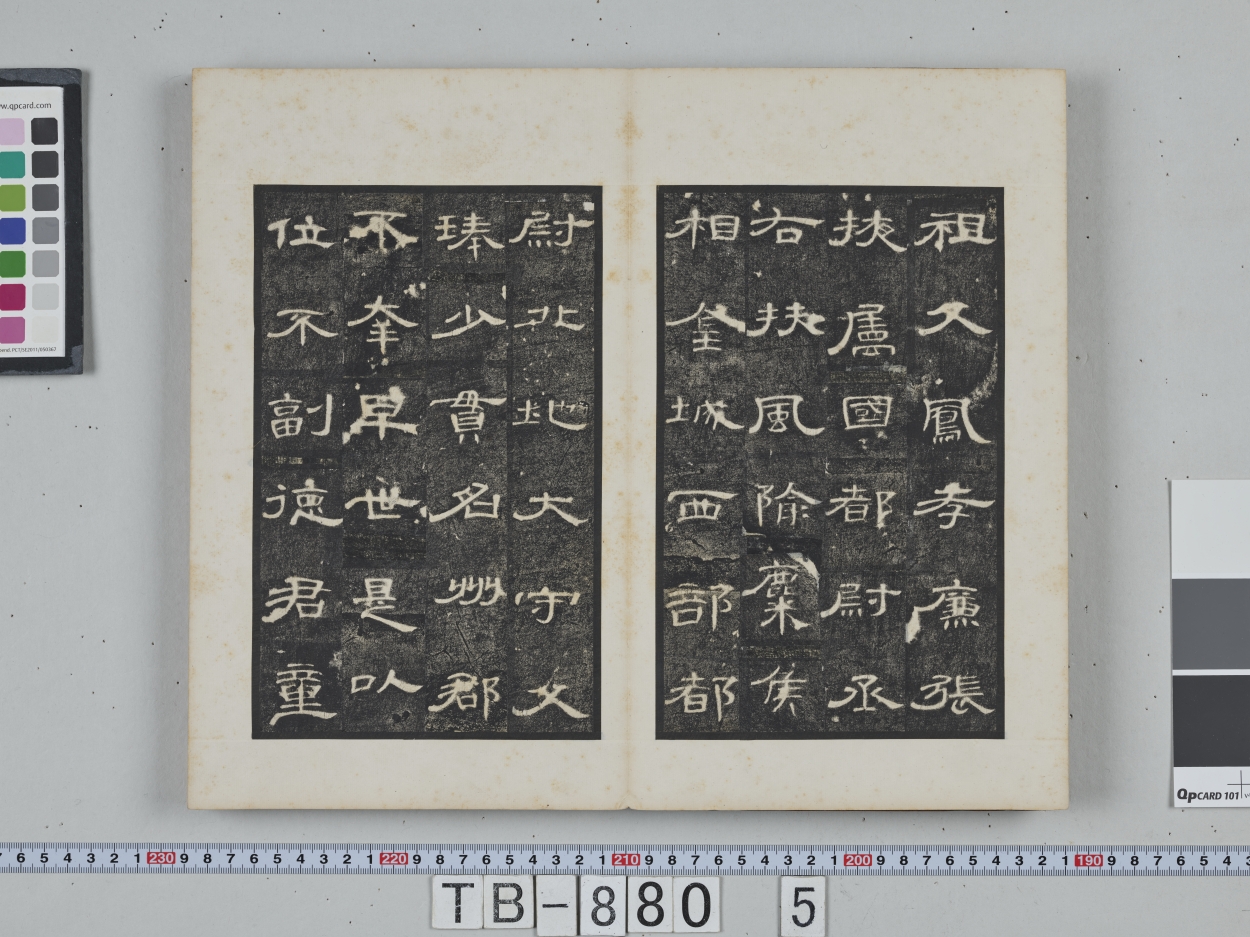 祖父鳳孝廉張
掖屬國都尉丞
右扶風隃麋侯
相金城西部都
尉北地大守父
琫少貫名州郡
不幸早世是以
位不副德君童
w.qpcard.com
QPCARD 101
6 5 4 3 2 1 230 9 8 7 6 5 4 3 2 1 220 9 8 7 6 5 4 3 2 1 210 9 8 7 6 5 4 3 2 1 200 9 8 7 6 5 4 3 2 1 190 9 8 7 6 5 4 3
TB-880 5